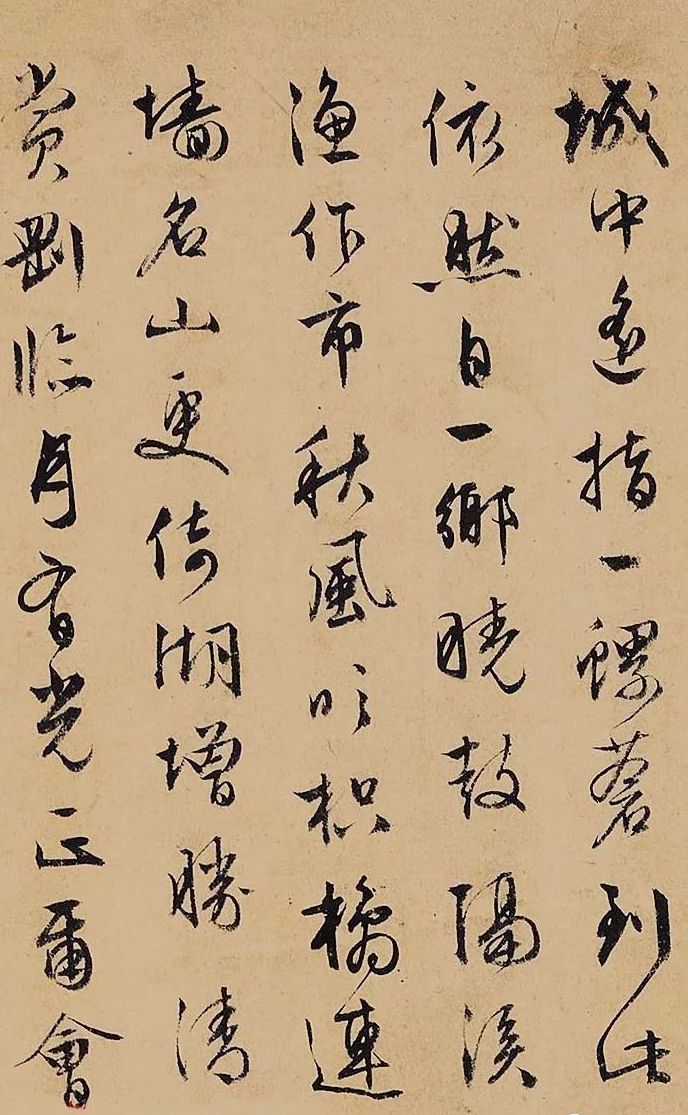 城中遙指一螺蒼到此
依然自一鄉曉鼓隔溪
漁作市秋風吹枳橘連
墻名山更倚湖增勝清
賞剛臨月有光正爾會